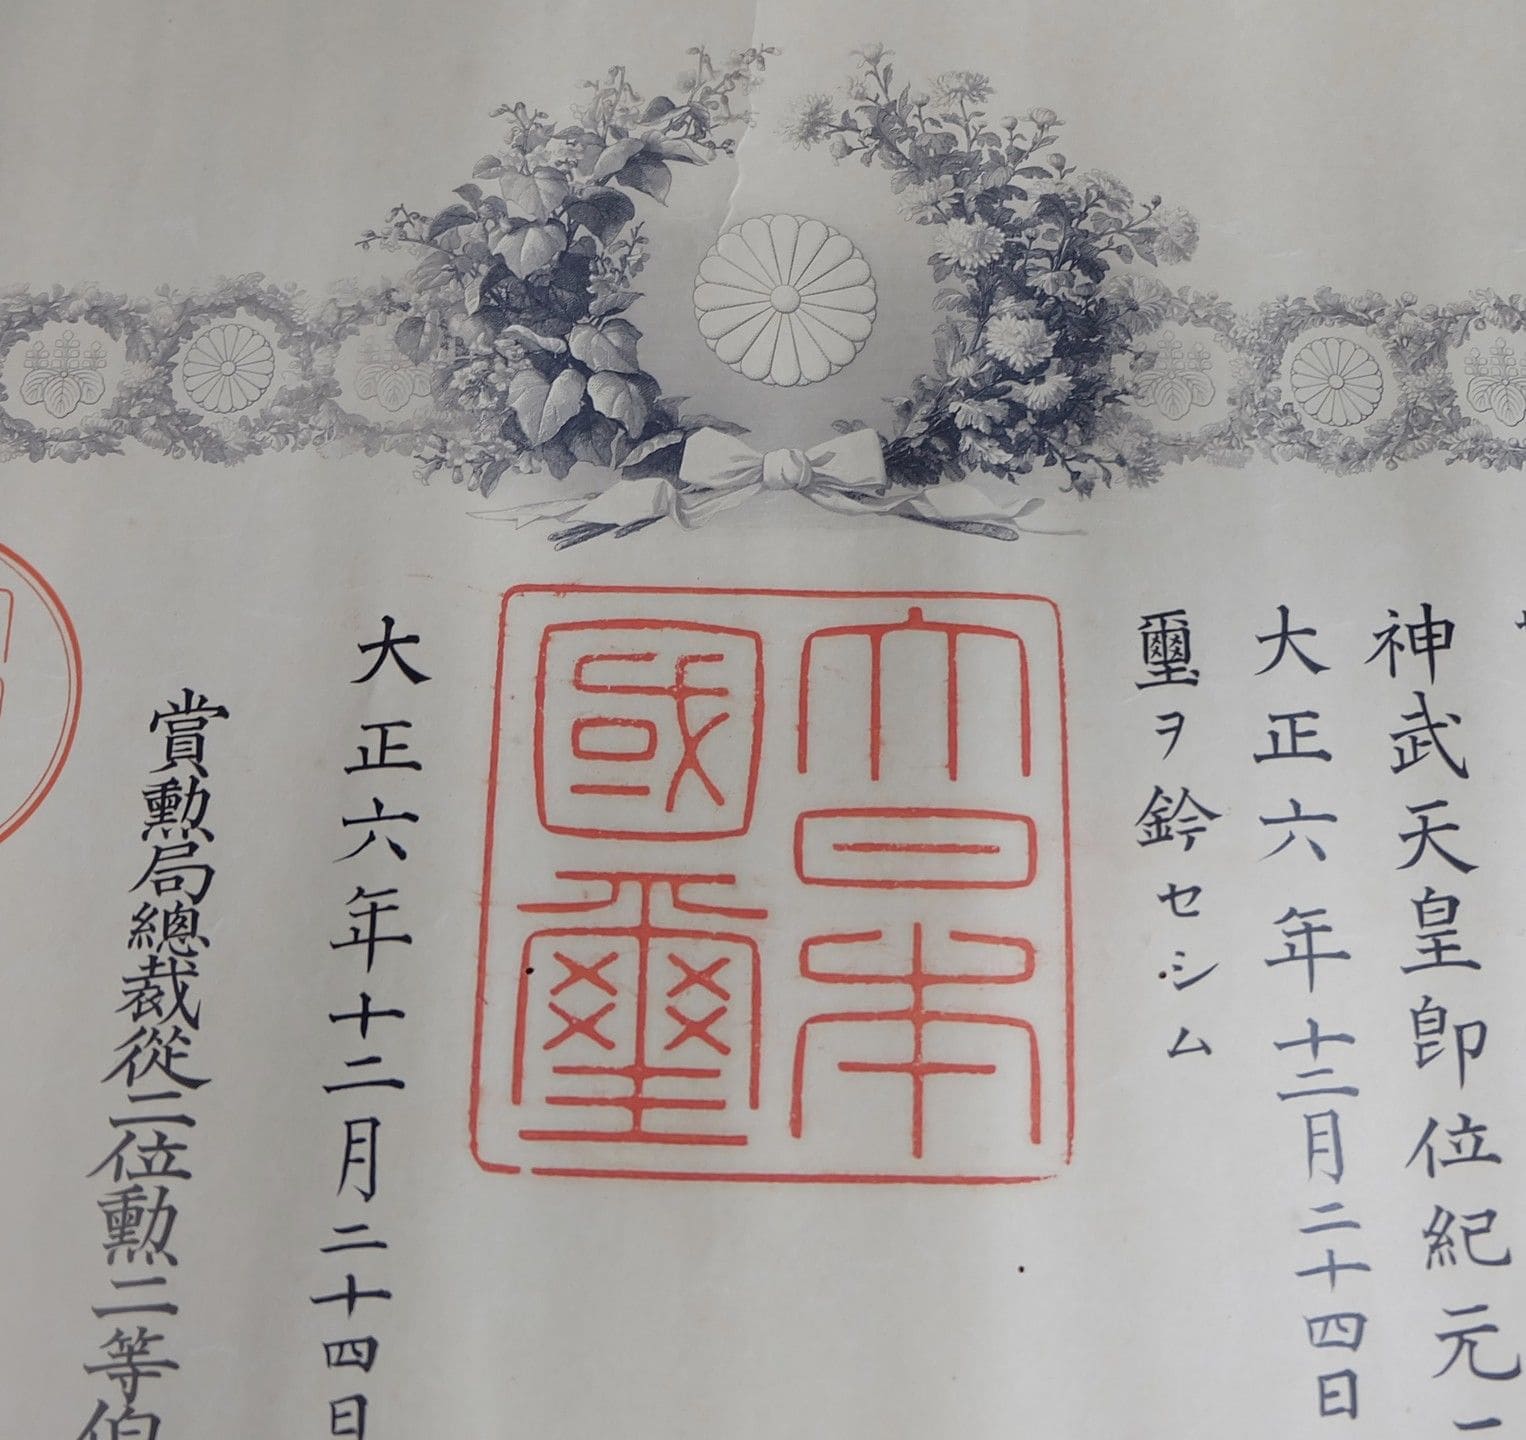 神武天皇卽位紀元
大正六年十二月二十四日
璽ヲ鈐セシム
大日本
國璽
大正六年十二月二十四日
賞勲局總裁從二位勲二等伯